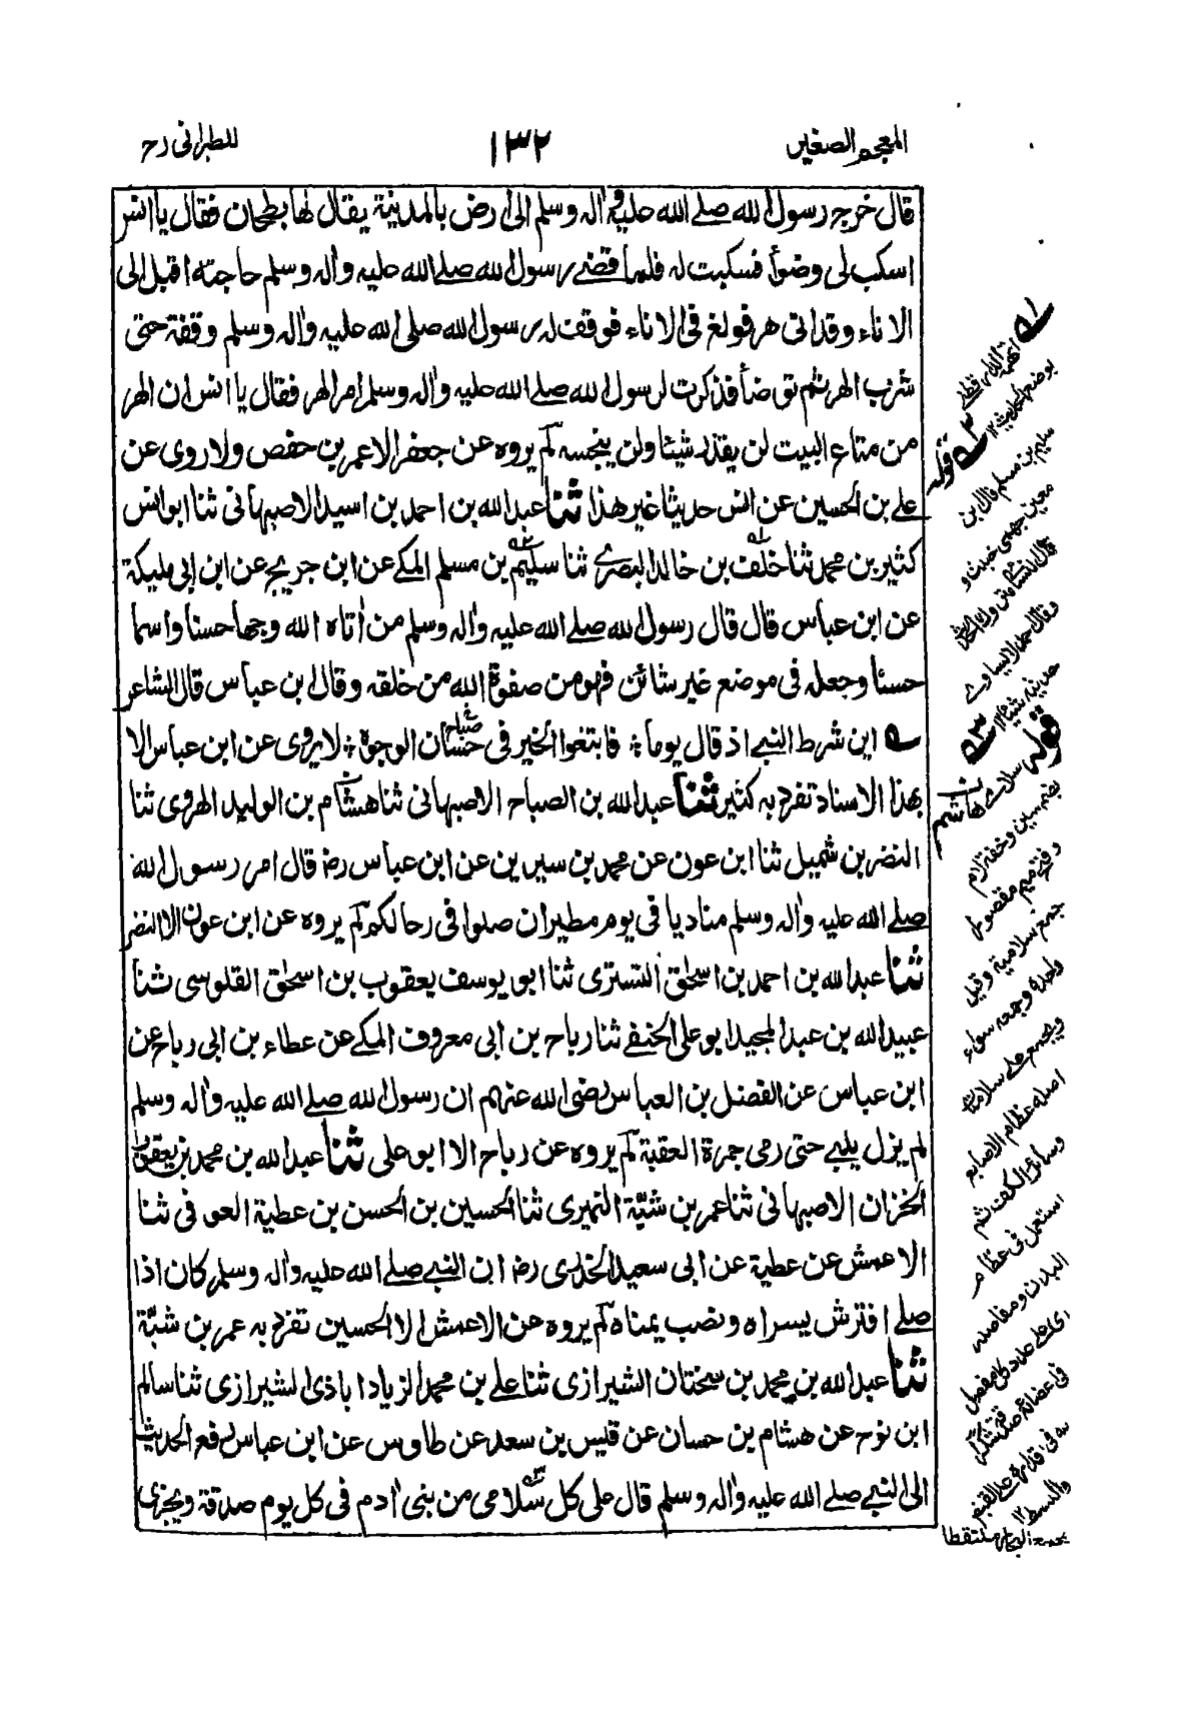 المعجم الصغير
١٣٢
للطبرانی رح
قال خرج رسول الله صلے الله علیه واٰله وسلم الی ارض بالمدینة یقال لها بطحان فقال یا انس
اسکب لی وضوأ فسکبت له فلما قضے رسول الله صلے الله علیه واٰله وسلم حاجته اقبل الی
الاناء وقد اتی هر فولغ فی الاناء فوقف له رسول الله صلی الله علیه واٰله وسلم وقفة حتی
شرب الهر ثم توضأ فذکرت لرسول الله صلے الله علیه واٰله وسلم امر الهر فقال یا انس ان الهر
من متاع البیت لن یقذر شیئا ولن ینجسه لم یروه عن جعفر الا عمر بن حفص ولا روی عن
علے بن الحسین عن انس حدیثا غیر هذا ثنا عبد الله بن احمد بن اسید الاصبهانی ثنا ابو انس
کثیر بن محمد ثنا خلف بن خالد البصرے ثنا سلیم بن مسلم المکے عن ابن جریج عن ابن ابی ملیکة
عن ابن عباس قال قال رسول الله صلے الله علیه واٰله وسلم من اٰتاه الله وجها حسنا واسما
حسنا وجعله فی موضع غیر شائن فهو من صفوة الله من خلقه وقال ابن عباس قال الشاعر
این شرط النبے اذ قال یوما ؛ فابتغوا الخیر فی حسان الوجوه ؛ لا یروی عن ابن عباس الا
صباح
بهذا الاسناد تفرد به کثیر ثنا عبد الله بن الصباح الاصبهانی ثنا هشام بن الولید الهروی ثنا
النضر بن شمیل ثنا ابن عون عن محمد بن سیرین عن ابن عباس رض قال امر رسول الله
صلے الله علیه واٰله وسلم منادیا فی یوم مطیر ان صلوا فی رحالکم لم یروه عن ابن عون الا النضر
ثنا عبد الله بن احمد بن اسحٰق التستری ثنا ابو یوسف یعقوب بن اسحٰق القلوسی ثنا
عبید الله بن عبد المجید ابو علی الحنفے ثنا رباح بن ابی معروف المکے عن عطاء بن ابی رباح عن
ابن عباس عن الفضل بن العباس رضی الله عنهم ان رسول الله صلے الله علیه واٰله وسلم
لم یزل یلبے حتی رمی جمرة العقبة لم یروه عن رباح الا ابو علی ثنا عبد الله بن محمد بن یعقوب
الخزان الاصبهانی ثنا عمر بن شبّة النمیری ثنا الحسین بن الحسن بن عطیة العوفی ثنا
الاعمش عن عطیة عن ابی سعید الخدری رض ان النبے صلے الله علیه واٰله وسلم کان اذا
صلے افترش یسراه ونصب یمناه لم یروه عن الاعمش الا الحسین تفرد به عمر بن شبّة
ثنا عبد الله بن محمد بن سختان الشیرازی ثنا علے بن محمد الزیاد اباذی الشیرازی ثنا سالم
ابن نوح عن هشام بن حسان عن قیس بن سعد عن طاوس عن ابن عباس رفع الحدیث
الی النبے صلے الله علیه واٰله وسلم قال علی کل سلامی من بنی اٰدم فی کل یوم صدقة ویجزی
قوله
سلیم بن مسلم قال ابن
معین جهمی خبیث و
حدیثه شیئا ١٢
قوله سلامے
هاشم
بضم سین وخفة لام
وفتح میم مقصورا
جمع سلامیة وقیل
واحده وجمعه سواء
ویجمع علے سلامیات
اصله عظام الاصابع
وسائر الکف ثم
استعمل فی عظام
البدن ومفاصله
ای علے عدد کل مفصل
فی اعضائه صدقة شکرا
والبسط ١٢
مجمع البحار ملتقطا